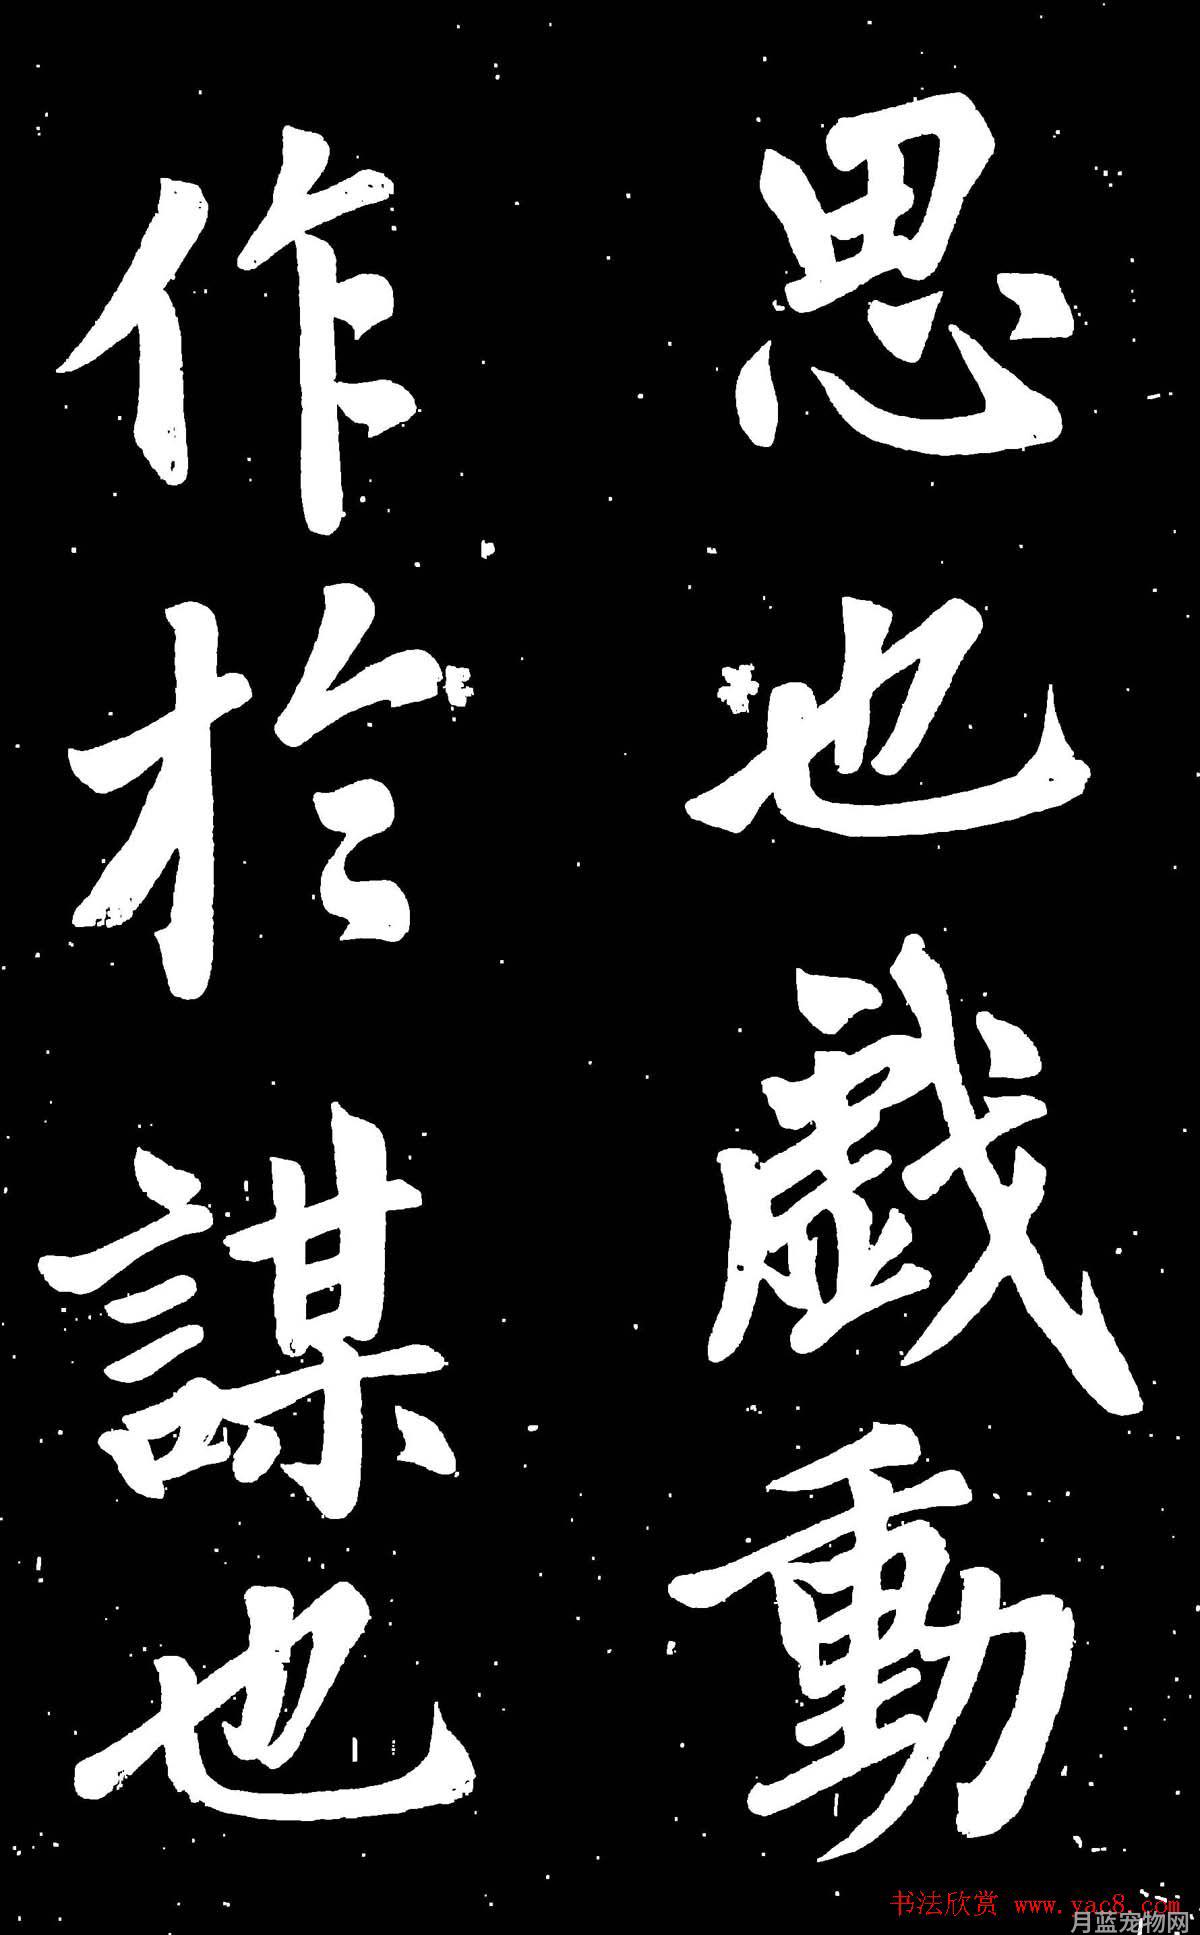 思也戲動
作於謀也
书法欣赏 www.yac8.com
月蓝宠物网